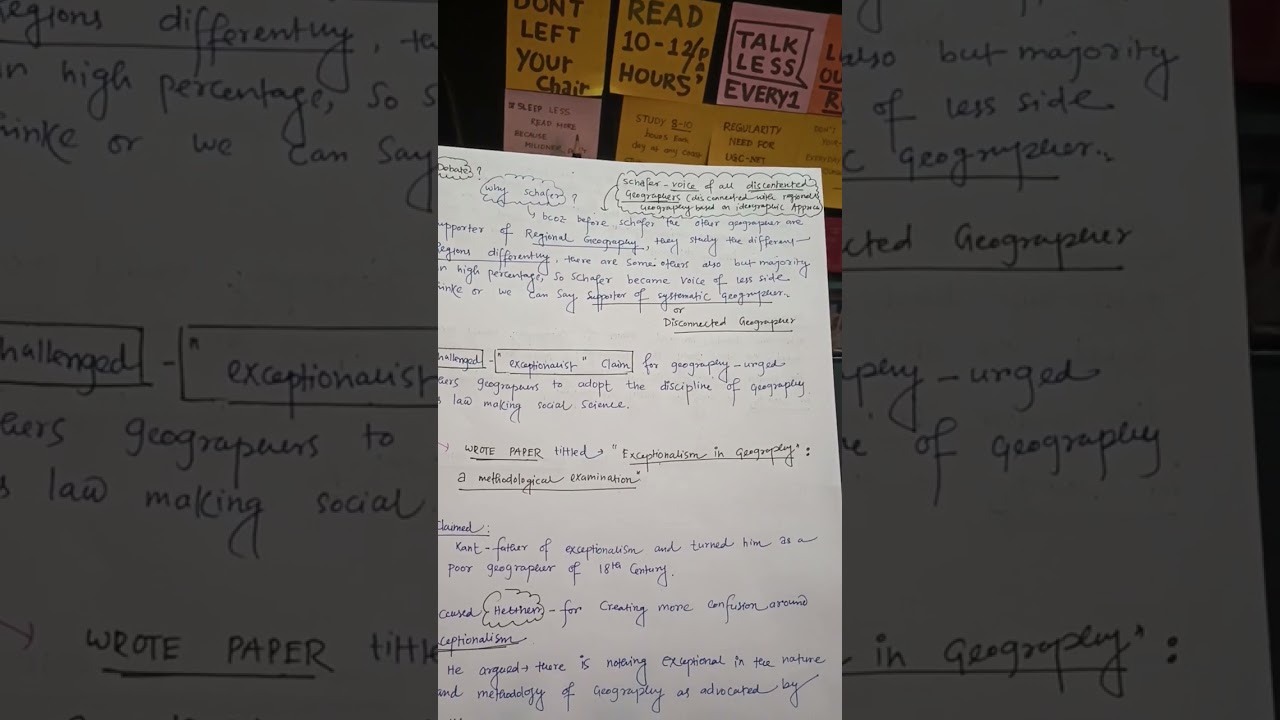 DONT
LEFT
YOUR
Chair
READ
10-12/P
HOURS
TALK
LESS
EVERY1
SLEEP LESS
READ MORE
BECAUSE
STUDY 8-10
hours
day at any
REGULARITY
NEED FOR
UGC-NET
Debate ?
Why Schafer ?
Schafer - voice of all discontented
Geographers (disconnected with regional
Geography based on ideographic Approach
bcoz before Schafer the other geographer are
upporter of Regional Geography, they study the different-
egions differently, there are some others also but majority
in high percentage, so Schafer became voice of less side
hinke or we can say supporter of systematic geographer..
or
Disconnected Geographer
hallenged - "exceptionalist" claim for geography - urged
hers geographers to adopt the discipline of Geography
s law making social science.
WROTE PAPER tittled → "Exceptionalism in Geography" :
a methodological examination"
Claimed :
Kant - father of exceptionalism and turned him as a
poor geographer of 18th Century.
ccused Hettner - for creating more confusion around
ceptionalism
He argued → there is nothing exceptional in the nature
and methodology of Geography as advocated by